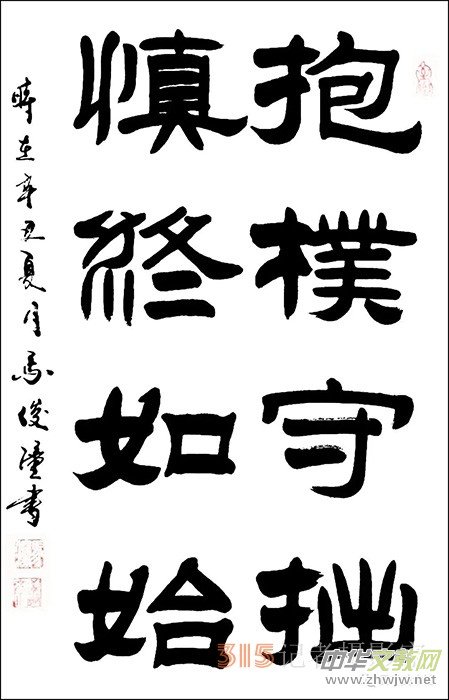 抱樸守拙
慎終如始
時在辛丑夏月馬俊書
315记者摄影
中华文教网
www.zhwjw.net